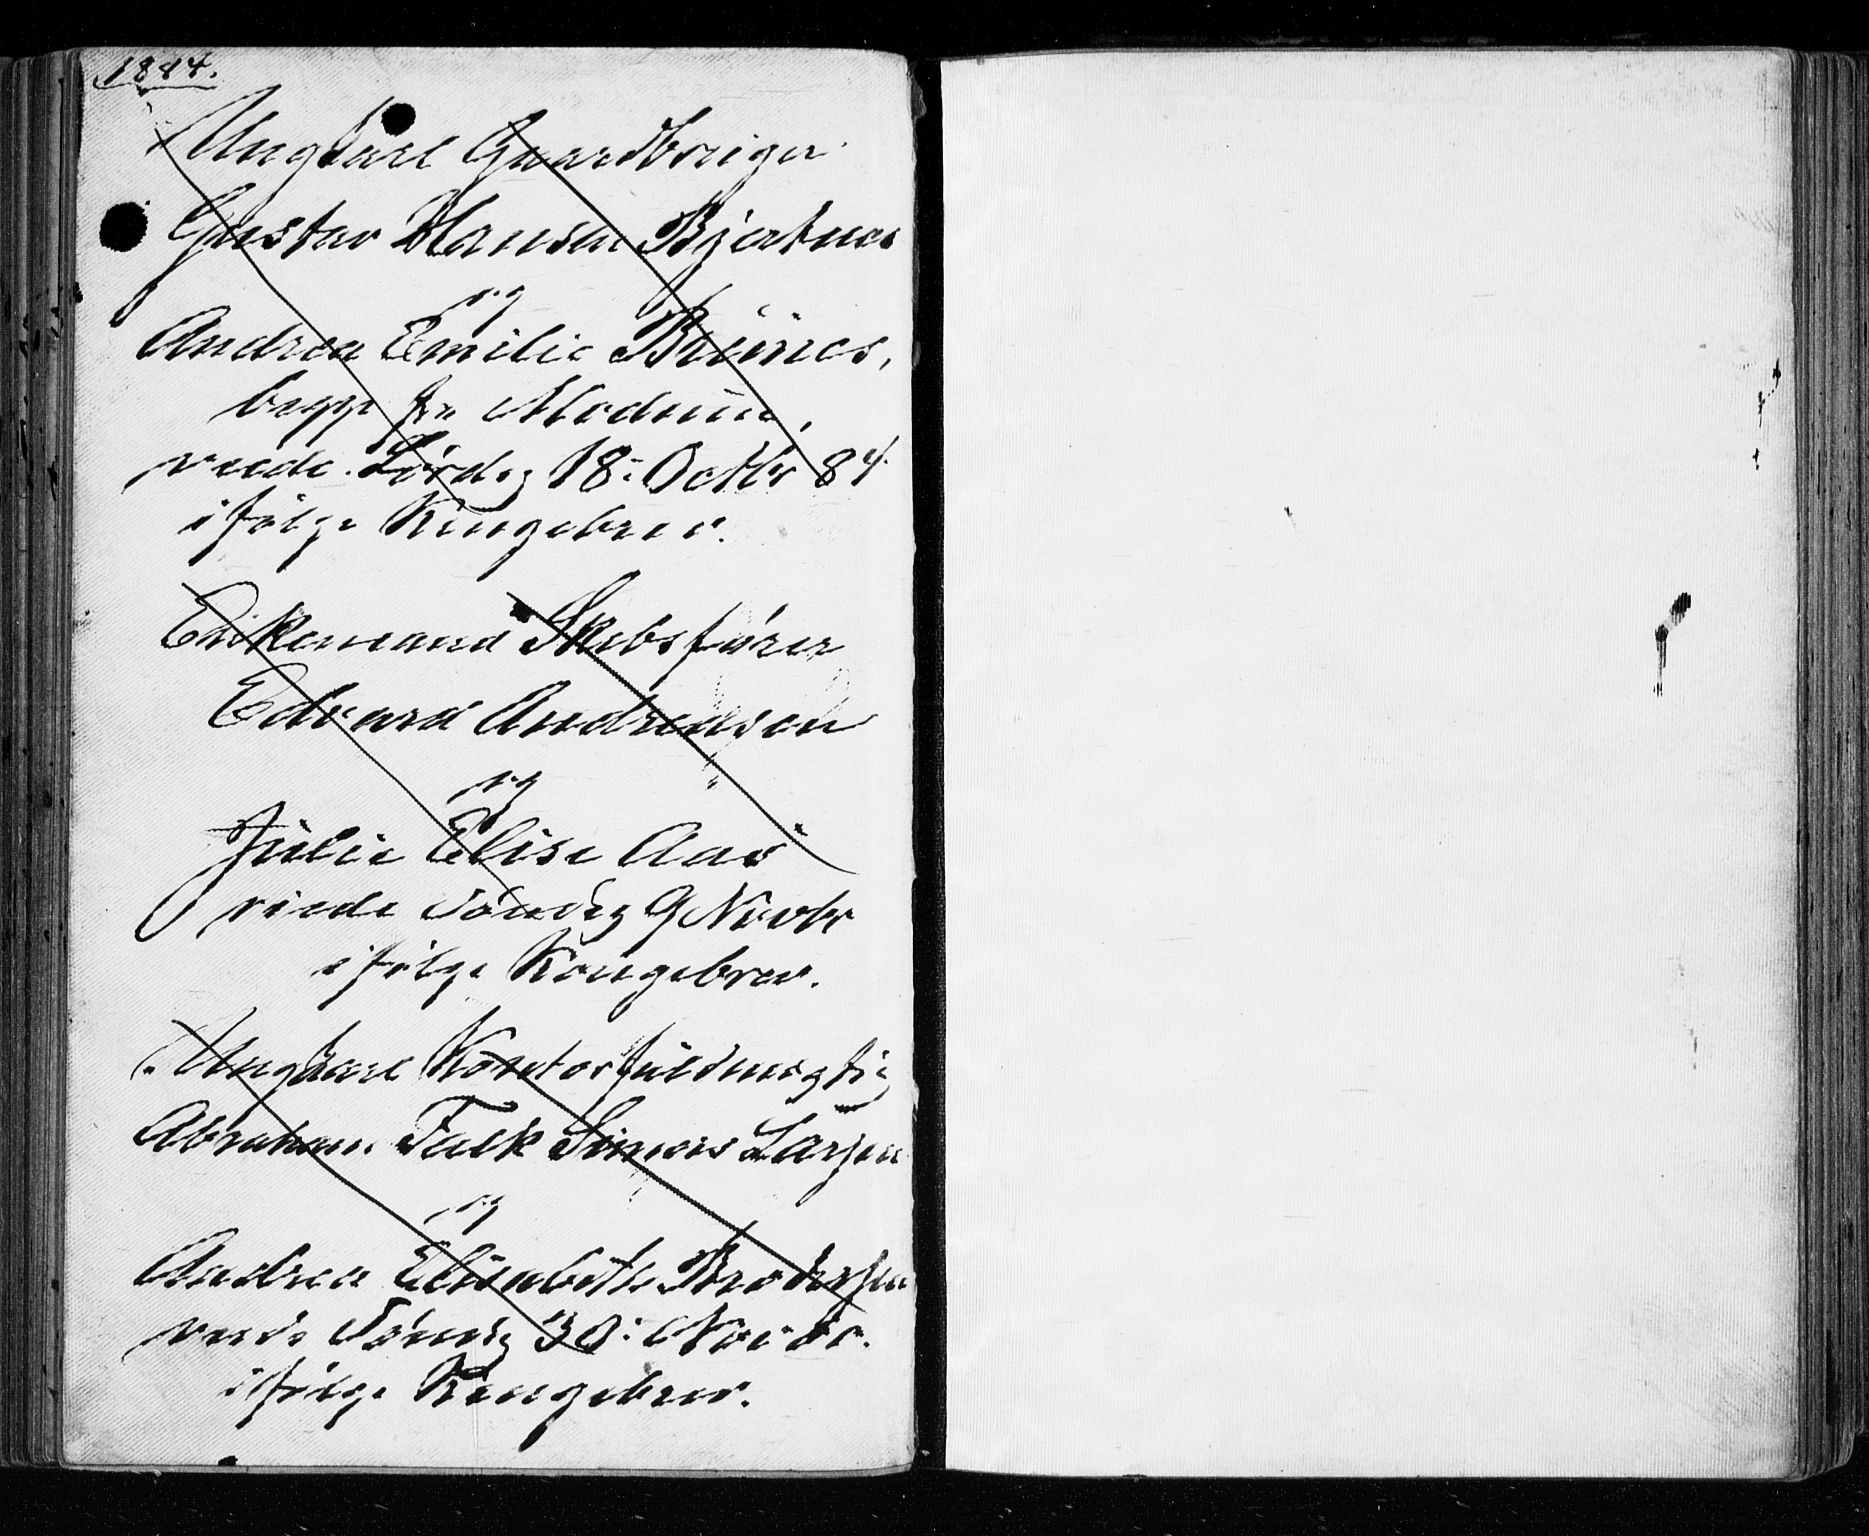 1884.
Ungkarl Gaardbruger
Gustav Hansen Bjertnæs
og
Andrea Emilie
begge fra Modum,
viede Lördag 18: Octbr 84
ifölge Kongebrev.
Enkemand Skibsfører
Edvard Andreasen
og
Julie Elise Aas
viede Søndag 9 Novbr
ifølge Kongebrev.
Ungkarl Kontorfuldmægtig
Abraham Falk Simers Larsen
og
Andrea Elisabeth Brodersen
viede Søndag 30: Novbr.
ifølge Kongebrev.